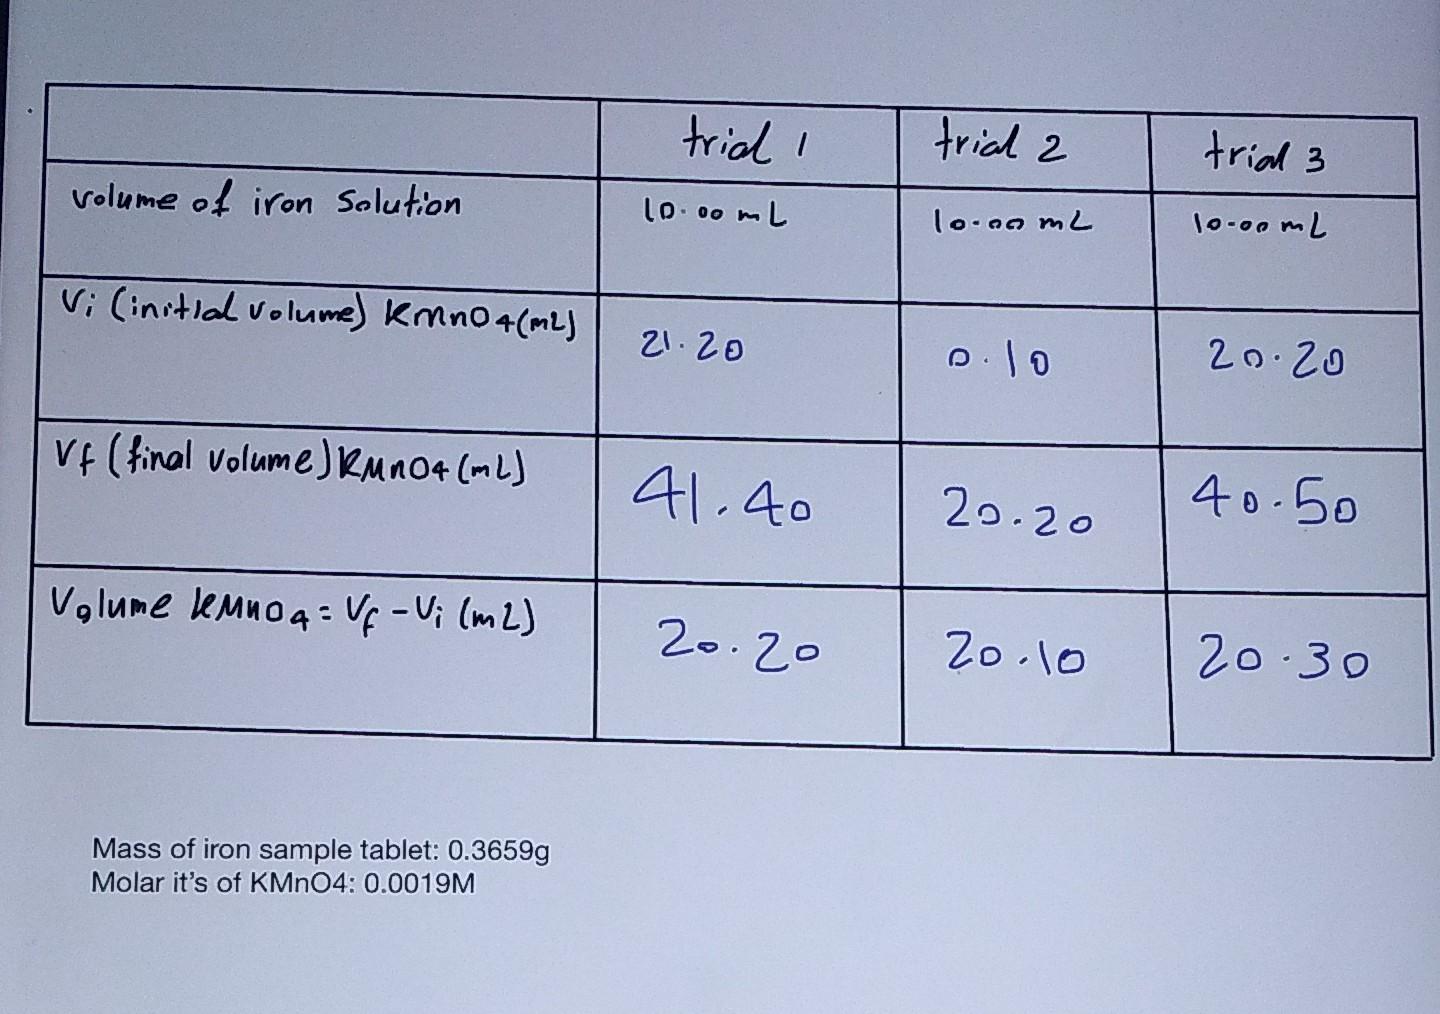 trial 1 trial 2 trial 3
volume of iron solution 10.00 mL 10.00 mL 10.00 mL
Vi (initial volume) KMnO4(mL) 21.20 0.10 20.20
Vf (final volume) KMnO4 (mL) 41.40 20.20 40.50
Volume KMnO4 = Vf - Vi (mL) 20.20 20.10 20.30
Mass of iron sample tablet: 0.3659g
Molar it's of KMnO4: 0.0019M